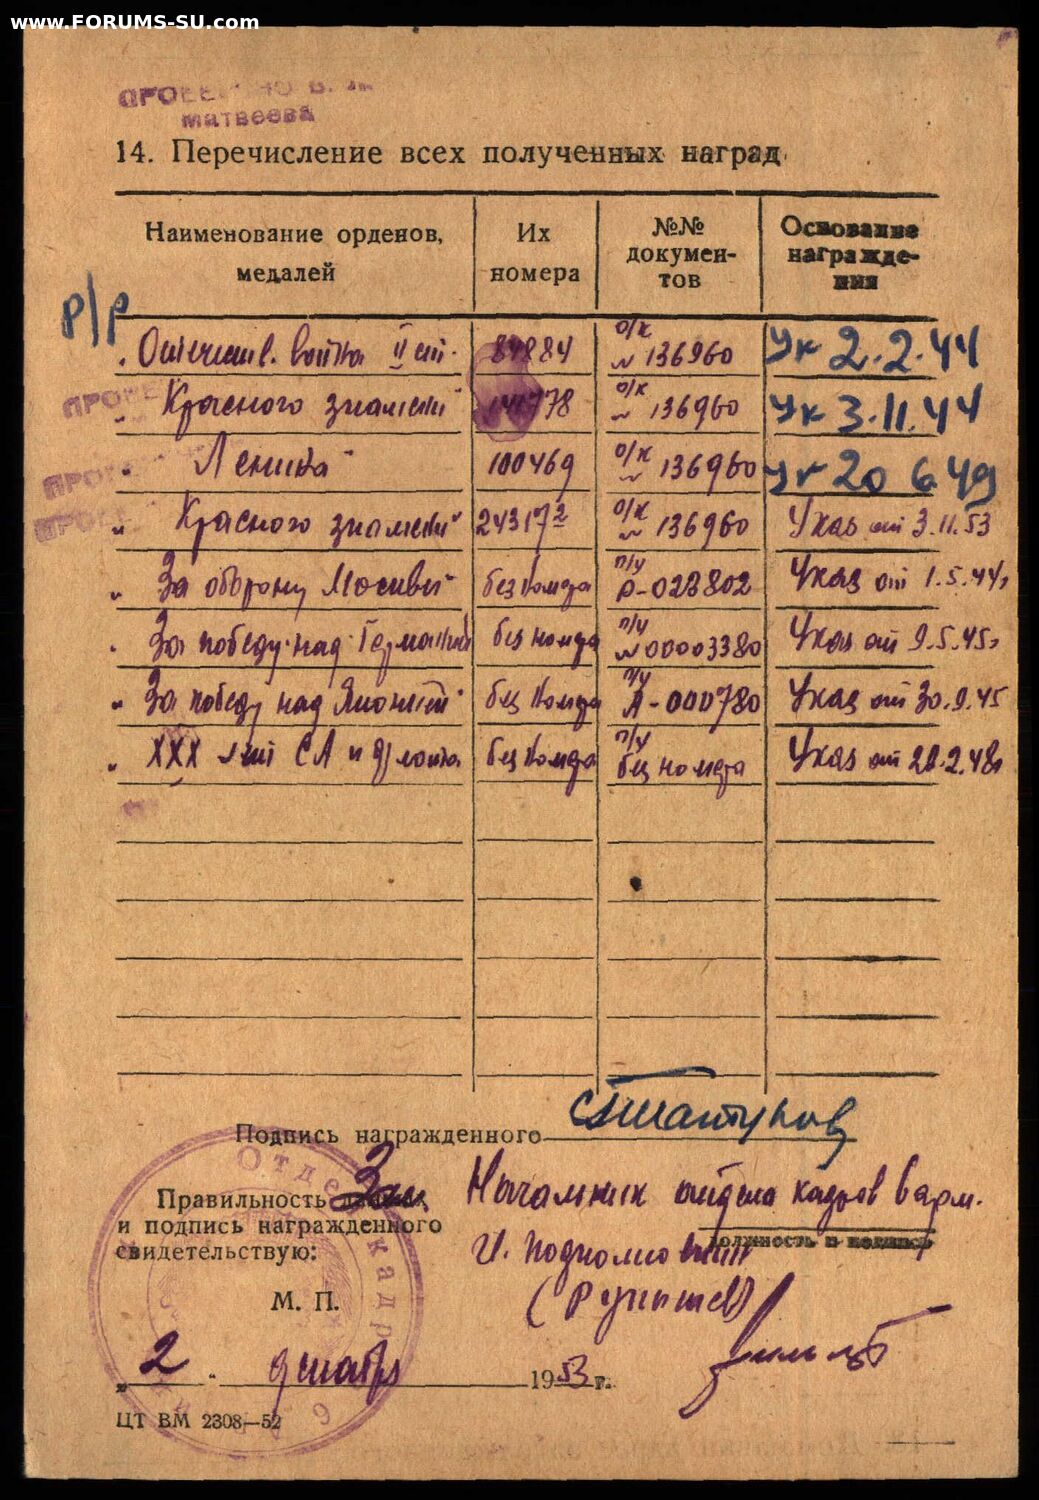 www.FORUMS-SU.com
Матвеева
14. Перечисление всех полученных наград
Наименование орденов, медалей
Их номера
№№ документов
Основание награждения
р/р
Отечеств. войны II ст. 84884 о/к № 136960 Ук 2.2.44
" Красного знамени 141778 о/к № 136960 Ук 3.11.44
" Ленина 100469 о/к № 136960 Ук 20 6 49
" Красного знамени 243172 о/к № 136960 Указ от 3.11.53
" За оборону Москвы без номера п/у 028802 Указ от 1.5.44г
За победу над Германией без номера п/у № 00003380 Указ от 9.5.45г
" За победу над Японией без номера п/у А-000780 Указ от 30.9.45
" XXX лет СА и флота без номера п/у без номера Указ от 22.2.48г
Подпись награжденного
Правильность
и подпись награжденного
свидетельствую:
Начальник отдела кадров 6 арм.
должность и подпись
г. подполковник
М. П.
"2" декабр 1953 г.
ЦТ ВМ 2308—52
Отдел кадров